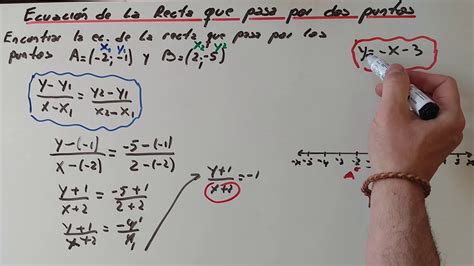 Ecuación de la Recta que pasa por dos puntos
Encontrar la ec. de la recta que pasa por los
x₁ y₁ x₂ y₂
puntos A=(-2;-1) y B=(2;-5)
y=-x-3
y-y₁/x-x₁ = y₂-y₁/x₂-x₁
y-(-1)/x-(-2) = -5-(-1)/2-(-2)
y+1/x+2 = -5+1/2+2
y+1/x+2 = -4/4 1
y+1/x+2 = -1
-x -5 -4 -3 -2
A